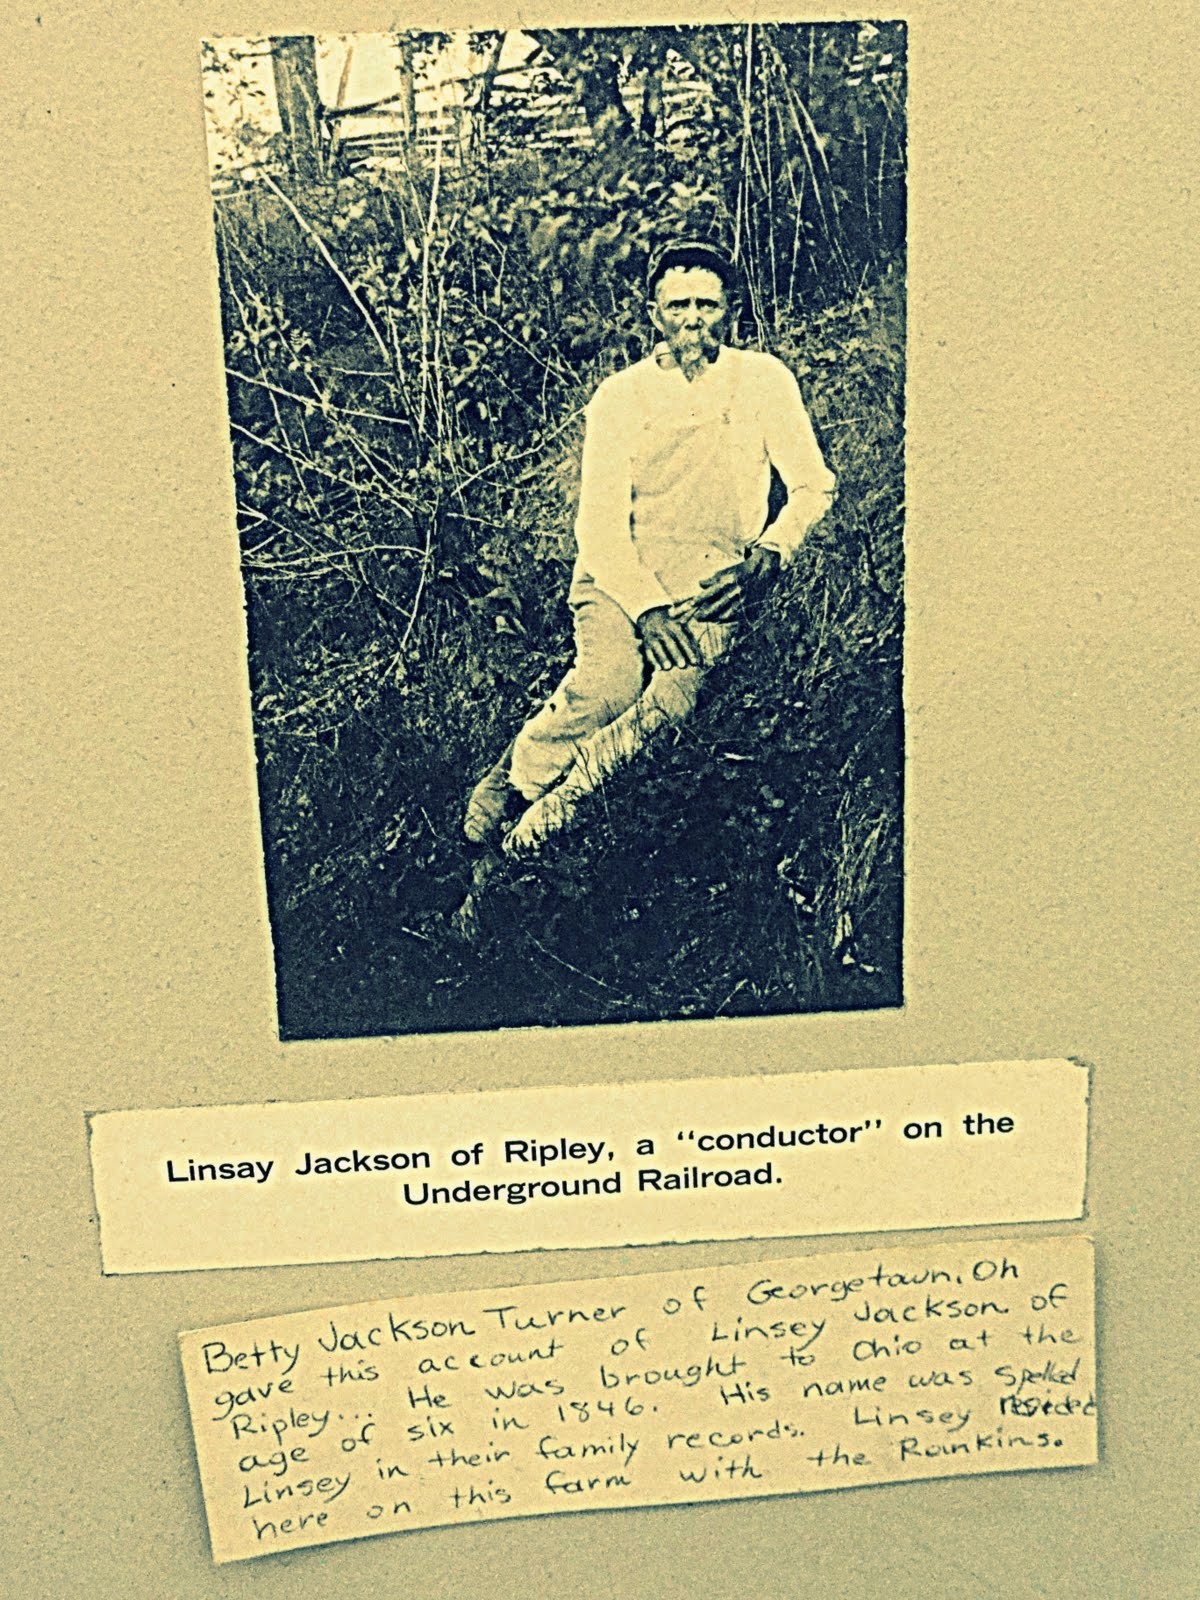 Linsay Jackson of Ripley, a “conductor” on the
Underground Railroad.
Betty Jackson Turner of Georgetown, Oh
gave this account of Linsey Jackson of
Ripley... He was brought to Ohio at the
age of six in 1846. His name was spelled
Linsey in their family records. Linsey resided
here on this farm with the Rankins.